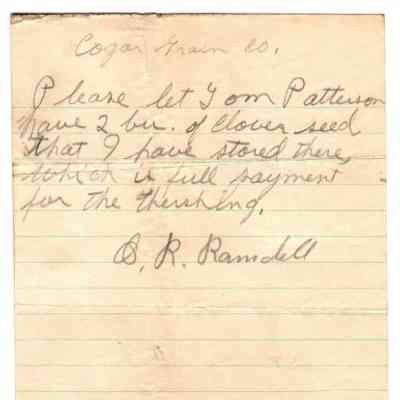 Cogar Grain Co.
Please let Tom Patterson
have 2 bu. of Clover seed
that I have stored there,
which is full payment
for the thershing.
C. R. Ramsdell